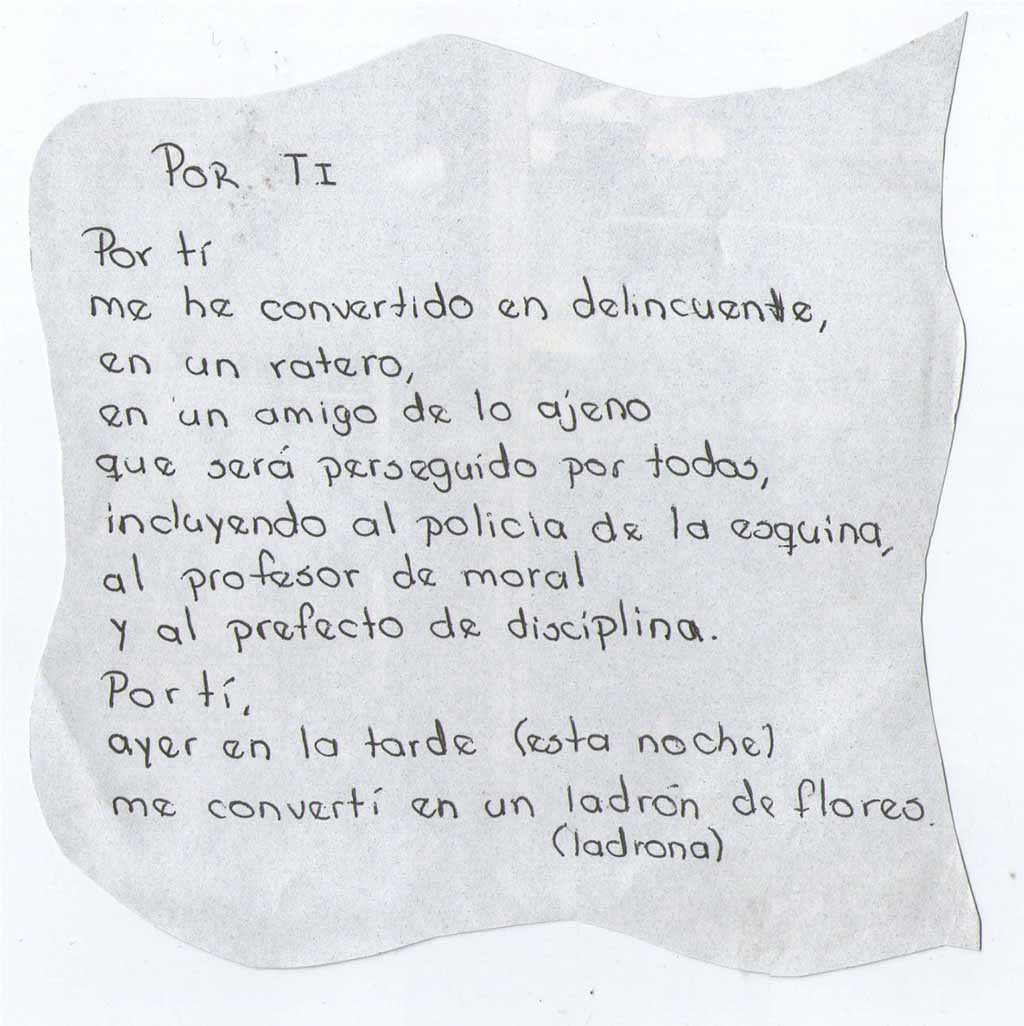 POR TI
Por tí
me he convertido en delincuente,
en un ratero,
en un amigo de lo ajeno
que será perseguido por todos,
incluyendo al policia de la esquina,
al profesor de moral
y al prefecto de disciplina.
Por tí,
ayer en la tarde (esta noche)
me convertí en un ladrón de flores.
(ladrona)